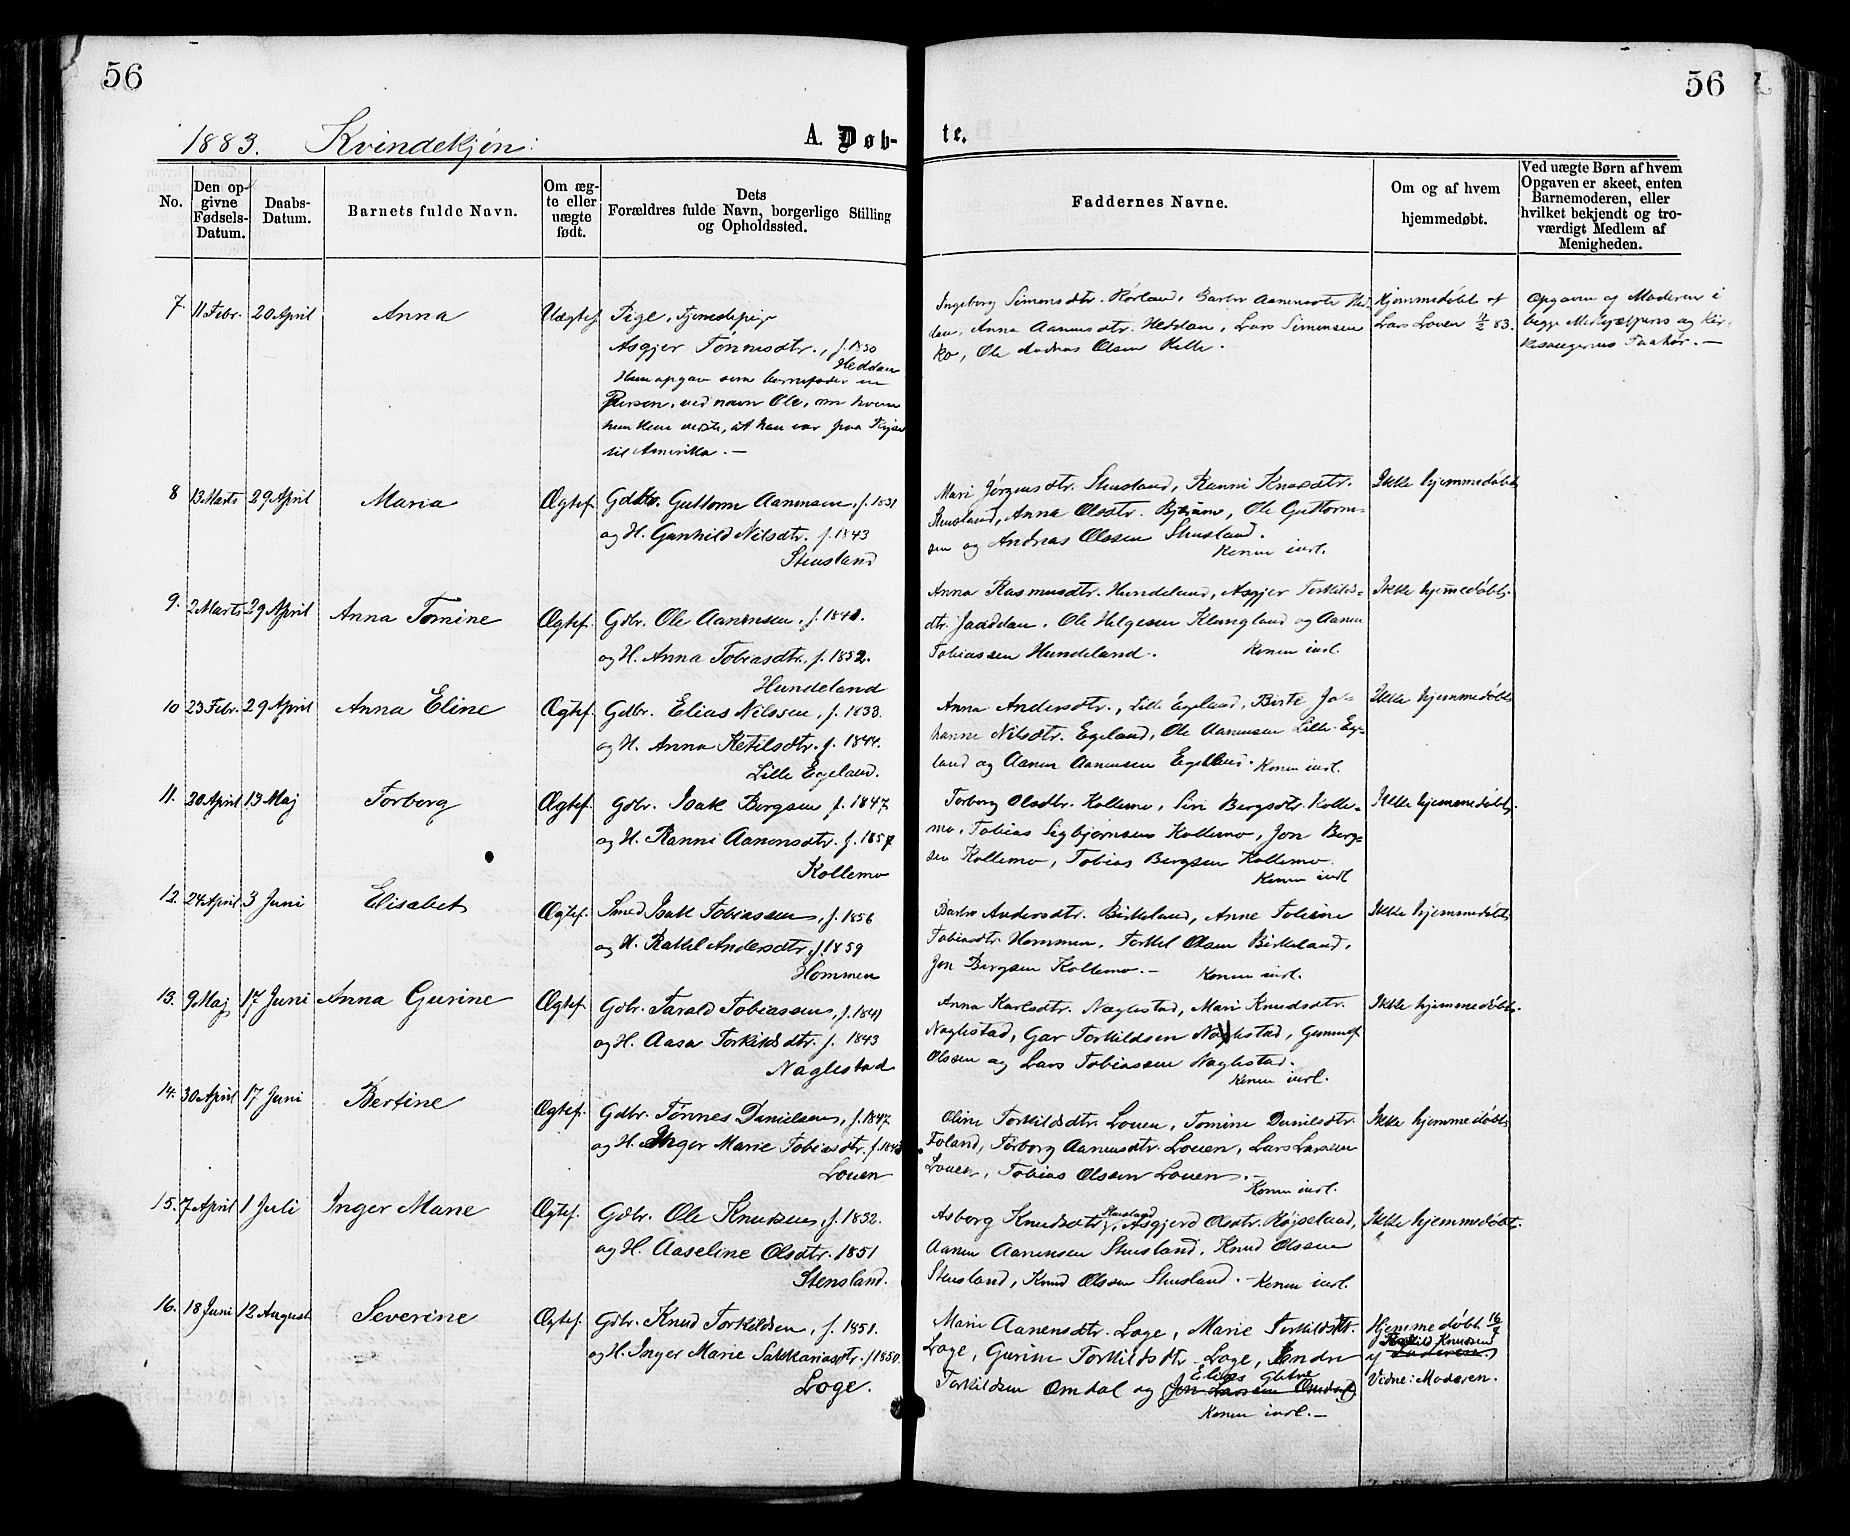 56
56
1883. Kvindekjøn:
A. Døb-
te.
No.
Den op-
givne
Fødsels-
Datum.
Daabs-
Datum.
Barnets fulde Navn.
Om æg-
te eller
uægte
født.
Dets
Forældres fulde Navn, borgerlige Stilling
og Opholdssted.
Faddernes Navne.
Om og af hvem
hjemmedøbt.
Ved uægte Børn af hvem
Opgaven er skeet, enten
Barnemoderen, eller
hvilket bekjendt og tro-
værdigt Medlem af
Menigheden.
7. 11 Febr. 20 April Anna Uægtef. Pige, Tjenestepige
Asgjer Tønnesdtr., f. 1850
Heddan
Hun opgav som barnefader en
Person, ved navn Ole, om hvem
hun kun vidste, at han var paa Rejse
til Amerika. —
Ingeborg Simonsdtr. Hørland, Barbro Aanensdtr. Hed-
dan, Anna Aanensdtr. Heddan, Lars Simonsen
Ko, Ole Andreas Olsen Helle.
Hjemmedøbt af
Lars Louen 11/2 83.
Opgaven af Moderen i
begge og Kir-
kesangerens Paahør. —
8 13 Marts 29 April Maria Ægtef. Gdbr. Guttorm Aanensen, f. 1831
og H. Gunhild Nilsdtr. f. 1843
Stensland
Mari Jörgensdtr. Stensland, Ranni Knudsdtr.
Stensland, Anna Olsdtr. Bjerum, Ole Guttorm-
sen og Andreas Olssen Stensland.
Konen indl.
Ikke hjemmedøbt
9. 2 Marts 29 April Anna Tomine Ægtef. Gdbr. Ole Aanensen, f. 1841.
og H. Anna Tobiasdtr. f. 1852.
Hundeland
Anna Rasmusdtr. Hundeland, Asgjer Torkilds-
dtr. Jaaddan, Ole Helgesen Klungland og Aanen
Tobiassen Hundeland. Konen indl.
Ikke hjemmedøbt.
10 23 Febr. 29 April Anna Eline Ægtef. Gdbr. Elias Nilssen, f. 1833.
og H. Anna Ketilsdtr. f. 1844.
Lille Egeland.
Anna Andersdtr., Lille Egeland, Birte Jo-
hanne Nilsdtr. Egeland, Ole Aanensen Lille Ege-
land og Aanen Aanensen Egeland. Konen indl.
Ikke hjemmedøbt
11. 20 April 13 Maj Torborg Ægtef. Gdbr. Isak Bergsen f. 1847
og H. Ranni Aanensdtr. f. 1857
Kollemo
Torborg Olsdtr. Kollemo, Siri Bergsdtr. Kolle-
mo, Tobias Sigbjørnsen Kollemo, Jon Berg-
sen Kollemo, Tobias Bergsen Kollemo.
Konen indl
Ikke hjemmedøbt.
12. 24 April 3 Juni Elisabet Ægtef. Smed Isak Tobiassen, f. 1856
og H. Rakel Andersdtr. f. 1859
Hommen
Barbro Andersdtr. Birkeland, Anne Tobine
Tobiasdtr. Hommen, Torkel Olsen Birkeland,
Jon Bergsen Kollemo. — Konen indl.
Ikke hjemmedøbt
13. 9 Maj 17 Juni Anna Gurine Ægtef. Gdbr. Tarald Tobiassen, f. 1841
og H. Aasa Torkildsdtr. f. 1843
Naglestad
Anna Karlsdtr. Naglestad, Mari Knudsdtr.
Naglestad, Gar Torkildsen Naglestad, Gunnuf
Olssen og Lars Tobiassen Naglestad.
Konen indl.
Ikke hjemmedøbt.
14. 30 April 17 Juni Bertine Ægtef. Gdbr. Tønnes Danielsen, f. 1847
og H. Inger Marie Tobiasdtr. f. 1843
Louen
Oline Torkildsdtr. Louen, Tomine Danielsdtr.
Foland, Torborg Aanensdtr. Louen, Lars Larssen
Louen, Tobias Olssen Louen. —
Konen indl.
Ikke hjemmedøbt
15. 7 April 1 Juli Inger Marie Ægtef. Gdbr. Ole Knudsen, f. 1852.
og H. Aaseline Olsdtr. 1851
Stensland.
Asborg Knudsdtr. Stensland, Asgjerd Olsdtr. Røjseland,
Aanen Aanensen Stensland, Knud Olssen
Stensland, Knud Olssen Stensland. — Konen indl.
Ikke hjemmedøbt.
16. 18 Juni 12 August Severine Ægtef. Gdbr. Knud Torkildsen, f. 1851.
og H. Inger Marie Sakkariasdtr. f 1850.
Loge.
Marie Aanensdtr. Loge, Marie Torkildsdtr.
Loge, Gurine Torkildsdtr. Loge, Endre
Elias
Torkildsen Omdal og Jon Larssen Omdal
Konen indl. —
Hjemmedøbt 16/7
Torkild Knudsen
af Faderen
Vidne: Moderen.